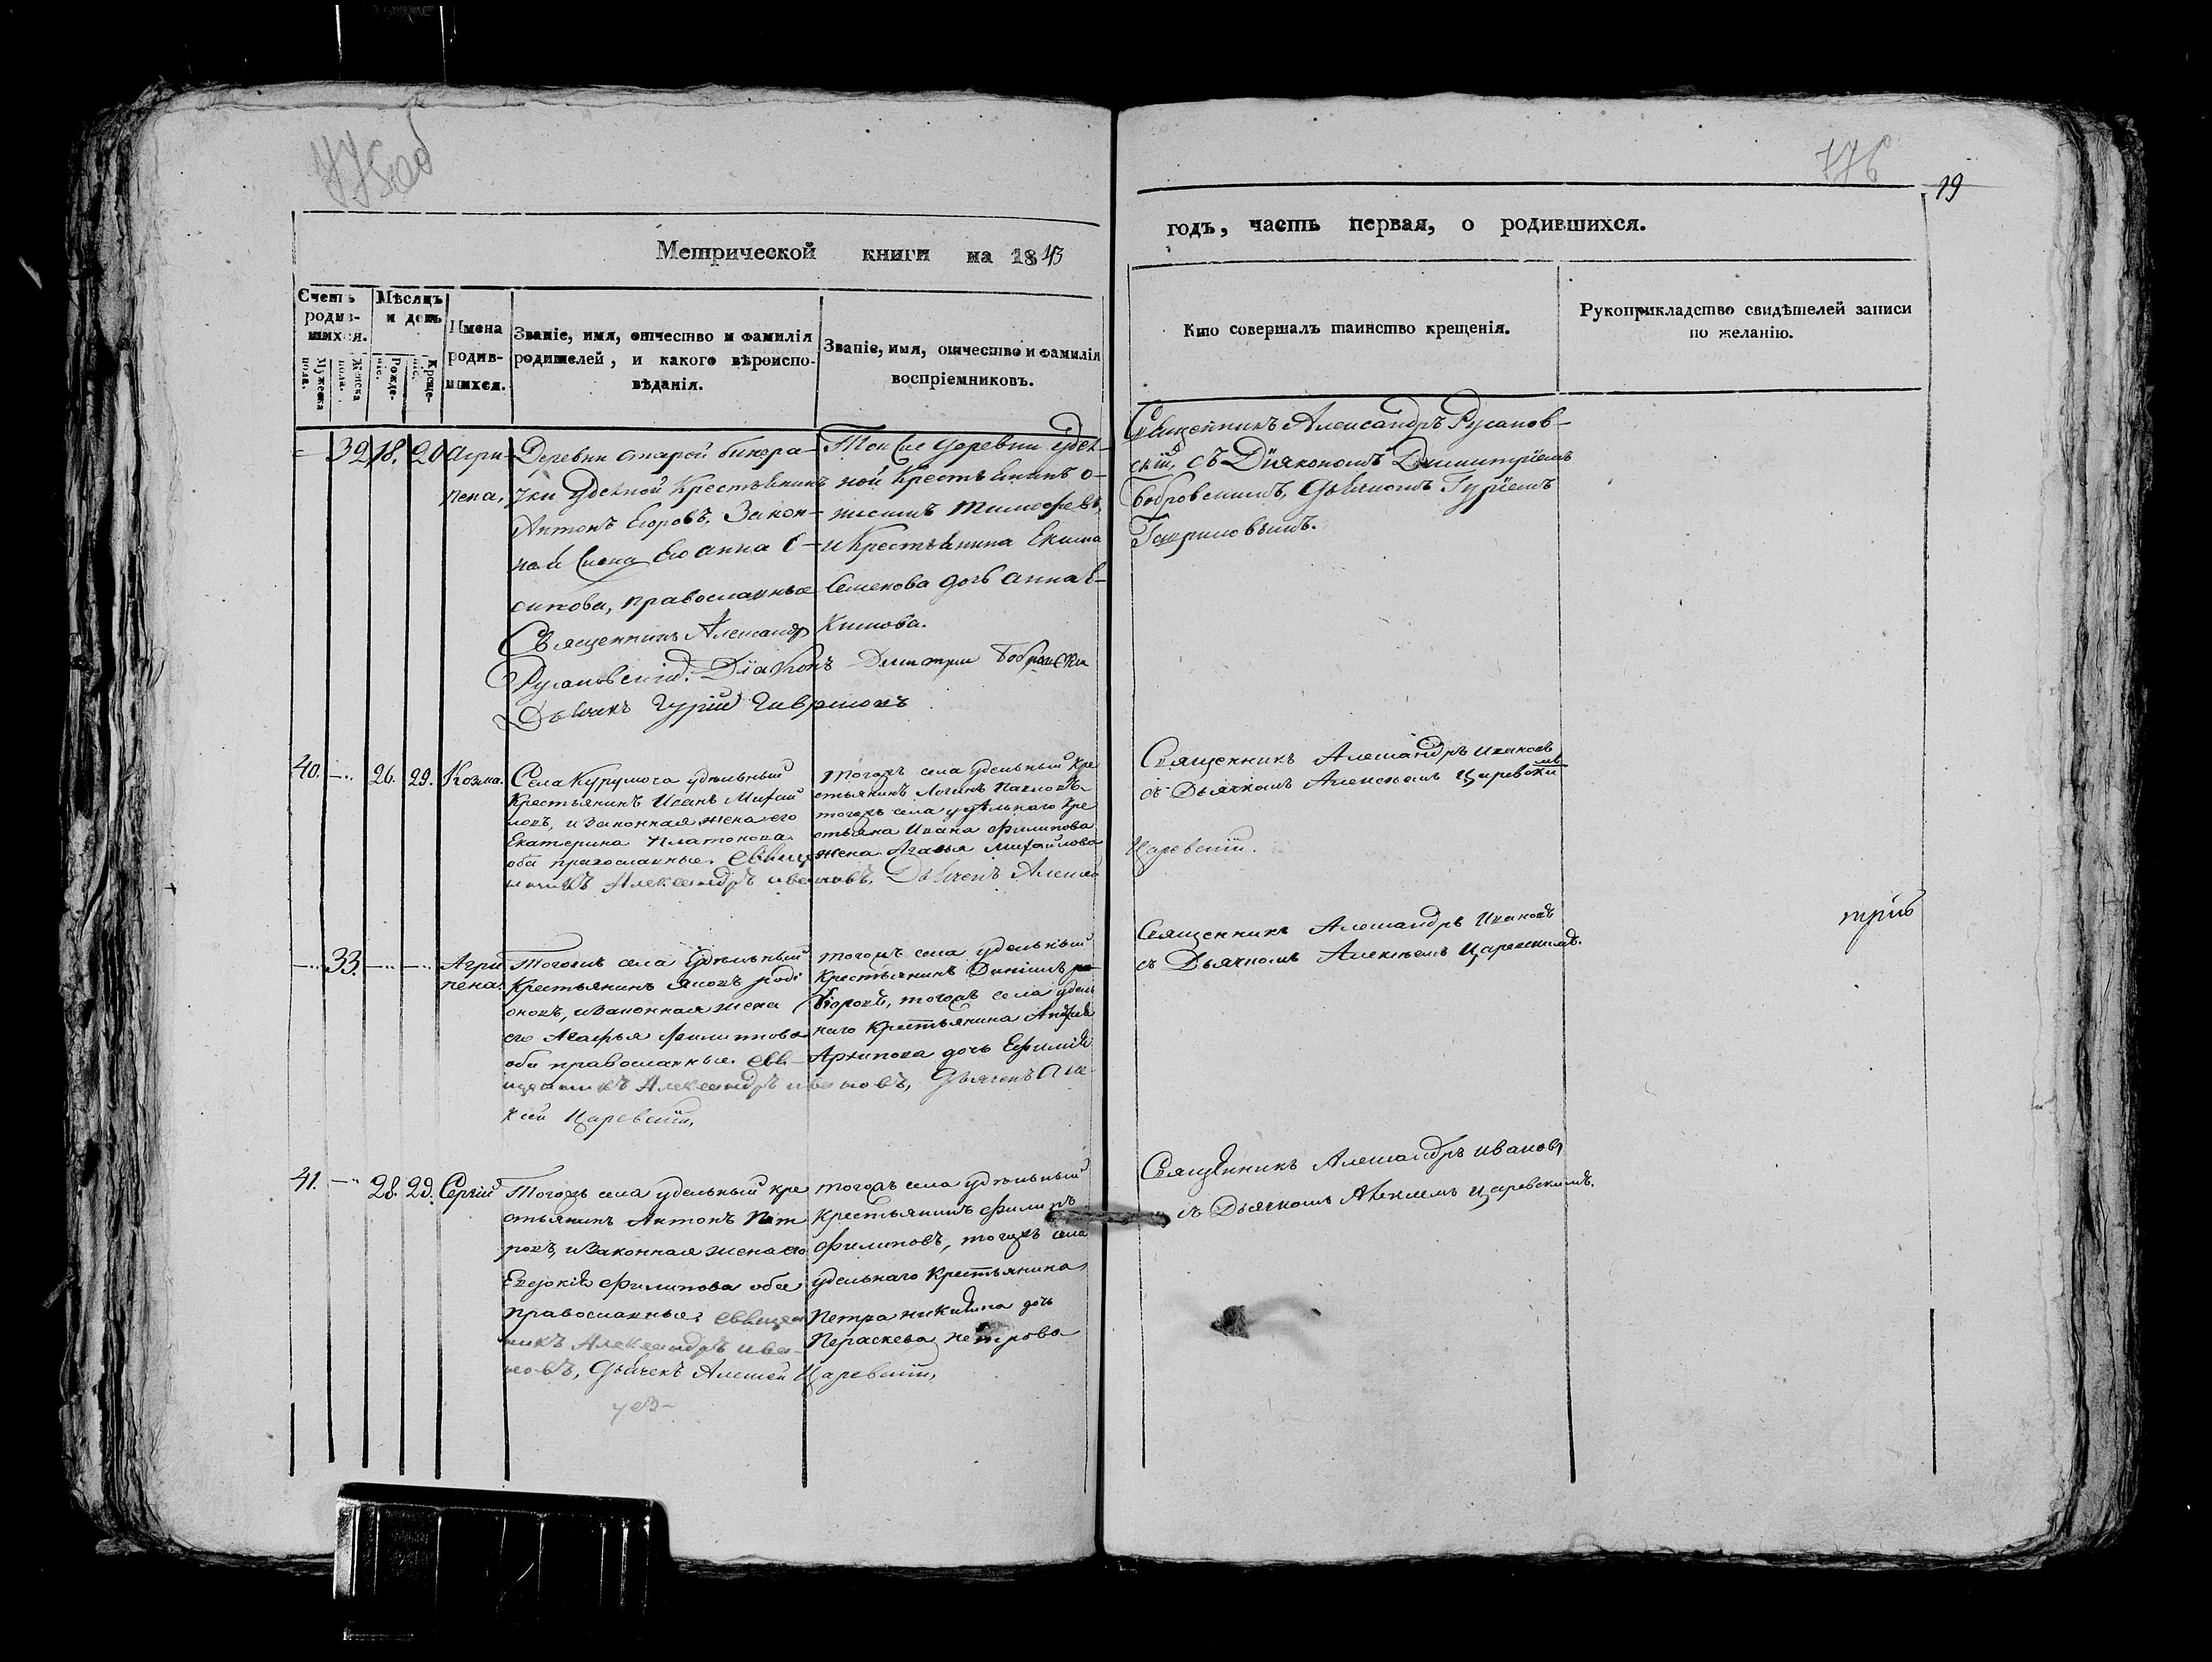 775об
776
19
Метрической книги на 1843
годъ, часть первая, о родившихся.
Счетъ родив-
шихся.
Мужеска пола.
Женска пола.
Мѣсяцъ
и день
Рожде-
ніе.
Креще-
ніе.
Имена
родив-
шихся.
Званіе, имя, отчество и фамилія
родителей, и какого вѣроиспо-
вѣданія.
Званіе, имя, отчество и фамилія
воспріемниковъ.
Кто совершалъ таинство крещенія.
Рукоприкладство свидѣтелей записи
по желанію.
32. 18. 20
Агри-
пена,
Деревни старой бинара-
тки Удельной Крестьянинъ
Антонъ Егоровъ, Закон-
ная жена Его Анна О-
сипова, православные
Священникъ Александр
Русановскій. Діаконъ Димитри Бобровски
Дьячекъ Гурій Гавриловъ
Той же деревни удел-
ной Крестьянинъ О-
нисимъ Тимофеевъ,
и Крестьянина Екима
Семенова дочь Анна Е-
кимова.
Священникъ Александръ Русанов-
скій, съ Діякономъ Димитріемъ
Бобровскимъ, Дьячкомъ Гуріемъ
Гавриловымъ.
40. 26. 29.
Козма.
Села Курумоча удельный
Крестьянинъ Иванъ Михай
ловъ, и Законная жена его
Екатерина Платонова
оба православные. Свящ
нникъ Александръ Ивановъ, Дьячекъ Алексѣй
тогожъ села удельный Кре
стьянинъ Логинъ Павловъ
тогожъ села удѣльнаго Кре
стьяна Ивана Филипова
жена Агафья Михайлова
Священникъ Александръ Ивановъ
съ Дьячкомъ Алексѣемъ Царевски
мъ
Царевскій.
33.
Агри
пена.
Тогожъ села Удѣльный
Крестьянинъ Яковъ роді
оновъ, и Законная жена
его Агафья Филиппова
оба православные. Свя-
щенникъ Александръ Ивановъ, Дьячекъ Але-
ксей Царевскій,
тогожъ села удельный
Крестьянинъ Даніилъ
тогожъ села удель
наго Крестьянина Андрея
Архипова дочь Ефимія
Священникъ Александръ Ивановъ
съ Дьячкомъ Алексѣемъ Царевскимъ.
41. 28. 29.
Сергій
Тогожъ села удельный кре
стьянинъ Антонъ Пет
ровъ, и Законная жена его
Евдокія Филипова оба
православные, Священ
никъ Александръ Ива-
новъ, Дьячекъ Алексей Царевскій,
тогожъ села удѣльный
Крестьянинъ Филипъ
Филиповъ, тогожъ села
удельнаго Крестьянина
Петра Никитина дочь
Пераскева Петрова
Священникъ Александръ Ивановъ
съ Дьячкомъ Алексѣемъ Царевскимъ.